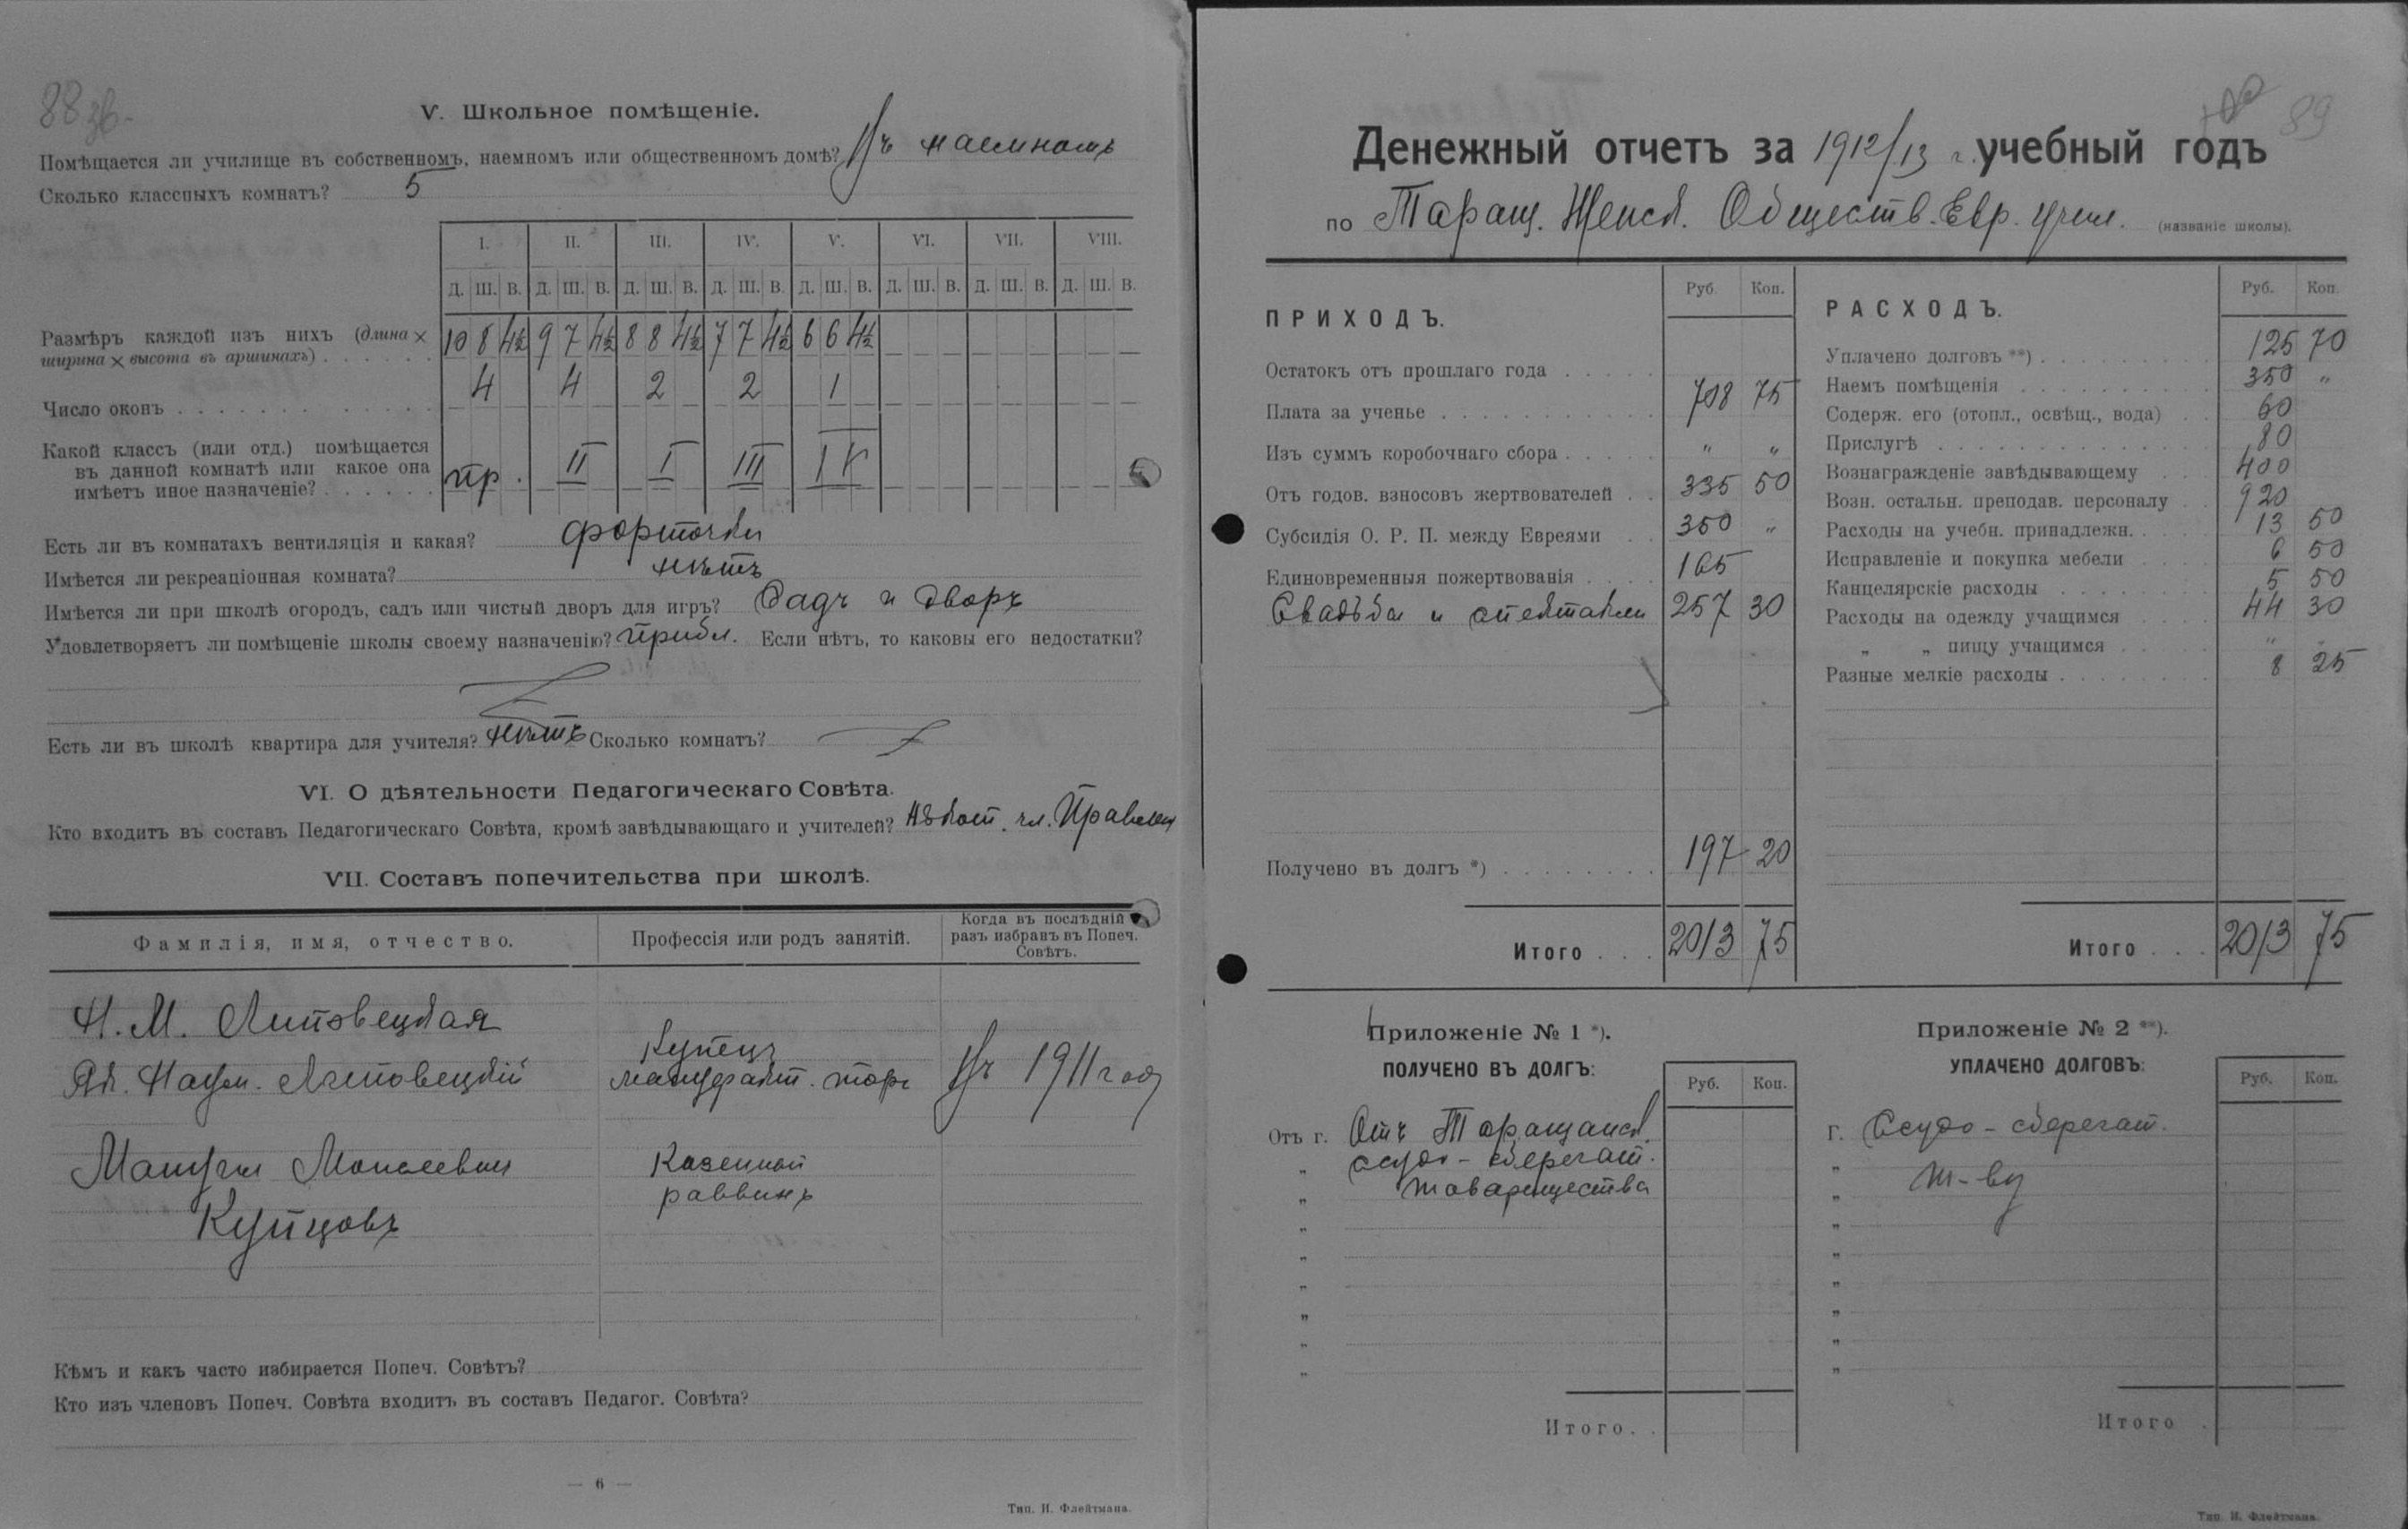 88 зв.
V. Школьное помѣщеніе.
Помѣщается ли училище въ собственномъ, наемномъ или общественномъ домѣ? Въ наемномъ
Сколько классныхъ комнатъ? 5
I. II. III. IV. V. VI. VII. VIII.
Д. Ш. В. Д. Ш. В. Д. Ш. В. Д. Ш. В. Д. Ш. В. Д. Ш. В. Д. Ш. В. Д. Ш. В.
Размѣръ каждой изъ нихъ (длина × 10 8 4½ 9 7 4½ 8 8 4½ 7 7 4½ 6 6 4½
ширина × высота въ аршинахъ)
Число оконъ 4 4 2 2 1
Какой классъ (или отд.) помѣщается
въ данной комнатѣ или какое она пр. II I III IV
имѣетъ иное назначеніе?
Есть ли въ комнатахъ вентиляція и какая? форточки
Имѣется ли рекреаціонная комната? нѣтъ
Имѣется ли при школѣ огородъ, садъ или чистый дворъ для игръ? Садъ и дворъ
Удовлетворяетъ ли помѣщеніе школы своему назначенію? Прибл. Если нѣтъ, то каковы его недостатки?
Есть ли въ школѣ квартира для учителя? нѣтъ Сколько комнатъ?
VI. О дѣятельности Педагогическаго Совѣта.
Кто входитъ въ составъ Педагогическаго Совѣта, кромѣ завѣдывающаго и учителей? чл. Правлен
VII. Составъ попечительства при школѣ.
Фамилія, имя, отчество. Профессія или родъ занятій. Когда въ послѣдній разъ избранъ въ Попеч. Совѣтъ.
Н. М. Липовецкая
Купецъ
Наум. Липовецкій мануфакт. торг Въ 1911 году
Моисеевичъ Казенный
раввинъ
Купцовъ
Кѣмъ и какъ часто избирается Попеч. Совѣтъ?
Кто изъ членовъ Попеч. Совѣта входитъ въ составъ Педагог. Совѣта?
— 6 —
Тип. И. Флейтмана.
89
Денежный отчетъ за 1912/13 г. учебный годъ
по Таращ. Женск. Обществ. Евр. учил. (названіе школы).
ПРИХОДЪ. Руб. Коп.
Остатокъ отъ прошлаго года
Плата за ученье 708 75
Изъ суммъ коробочнаго сбора " "
Отъ годов. взносовъ жертвователей 335 50
Субсидія О. Р. П. между Евреями 350 "
Единовременныя пожертвованія 165
Свадьбы и спектакли 257 30
Получено въ долгъ *) 197 20
Итого 2013 75
РАСХОДЪ. Руб. Коп.
Уплачено долговъ **) 125 70
Наемъ помѣщенія 350 "
Содерж. его (отопл., освѣщ., вода) 60
Прислугѣ 80
Вознагражденіе завѣдывающему 400
Возн. остальн. преподав. персоналу 920
Расходы на учебн. принадлежн. 13 50
Исправленіе и покупка мебели 6 50
Канцелярскіе расходы 5 50
Расходы на одежду учащимся 44 30
„ „ пищу учащимся " "
Разные мелкіе расходы 8 25
Итого 2013 75
Приложеніе № 1 *).
ПОЛУЧЕНО ВЪ ДОЛГЪ:
Руб. Коп.
Отъ г. Отъ Таращанск.
„ ссудо-сберегат.
„ товарищества
„
„
„
„
„
„
Итого.
Приложеніе № 2 **).
УПЛАЧЕНО ДОЛГОВЪ:
Руб. Коп.
г. Ссудо-сберегат.
„ т-ву
„
„
„
„
„
„
„
Итого
Тип. И. Флейтмана.